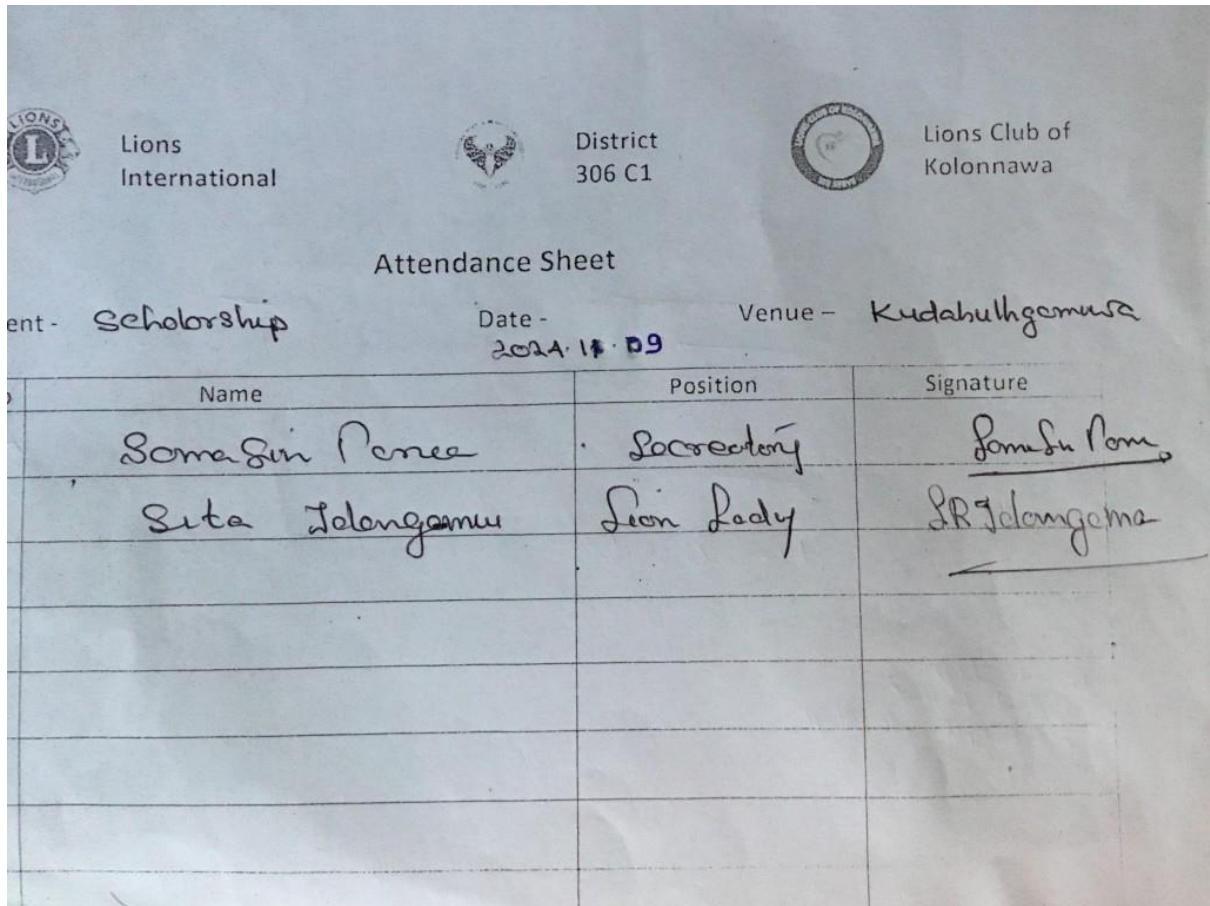 LIONS
L
Lions
International
District
306 C1
Lions Club of
Kolonnawa
Attendance Sheet
ent - Scholorship
Date -
2024.11.09
Venue - Kudabuthgamuwa
Name Position Signature
Soma Siri Secreatory
Sita Idangama Lion Lady SR Idangama